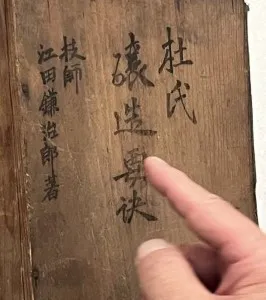 杜氏
釀造要訣
技師
江田鎌治郎著